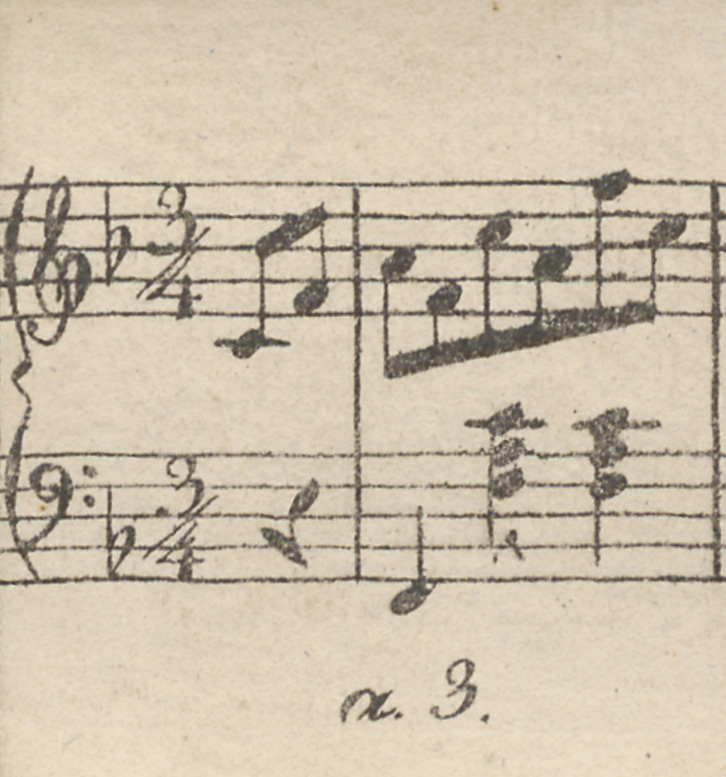 3/4
3/4
x. 3.